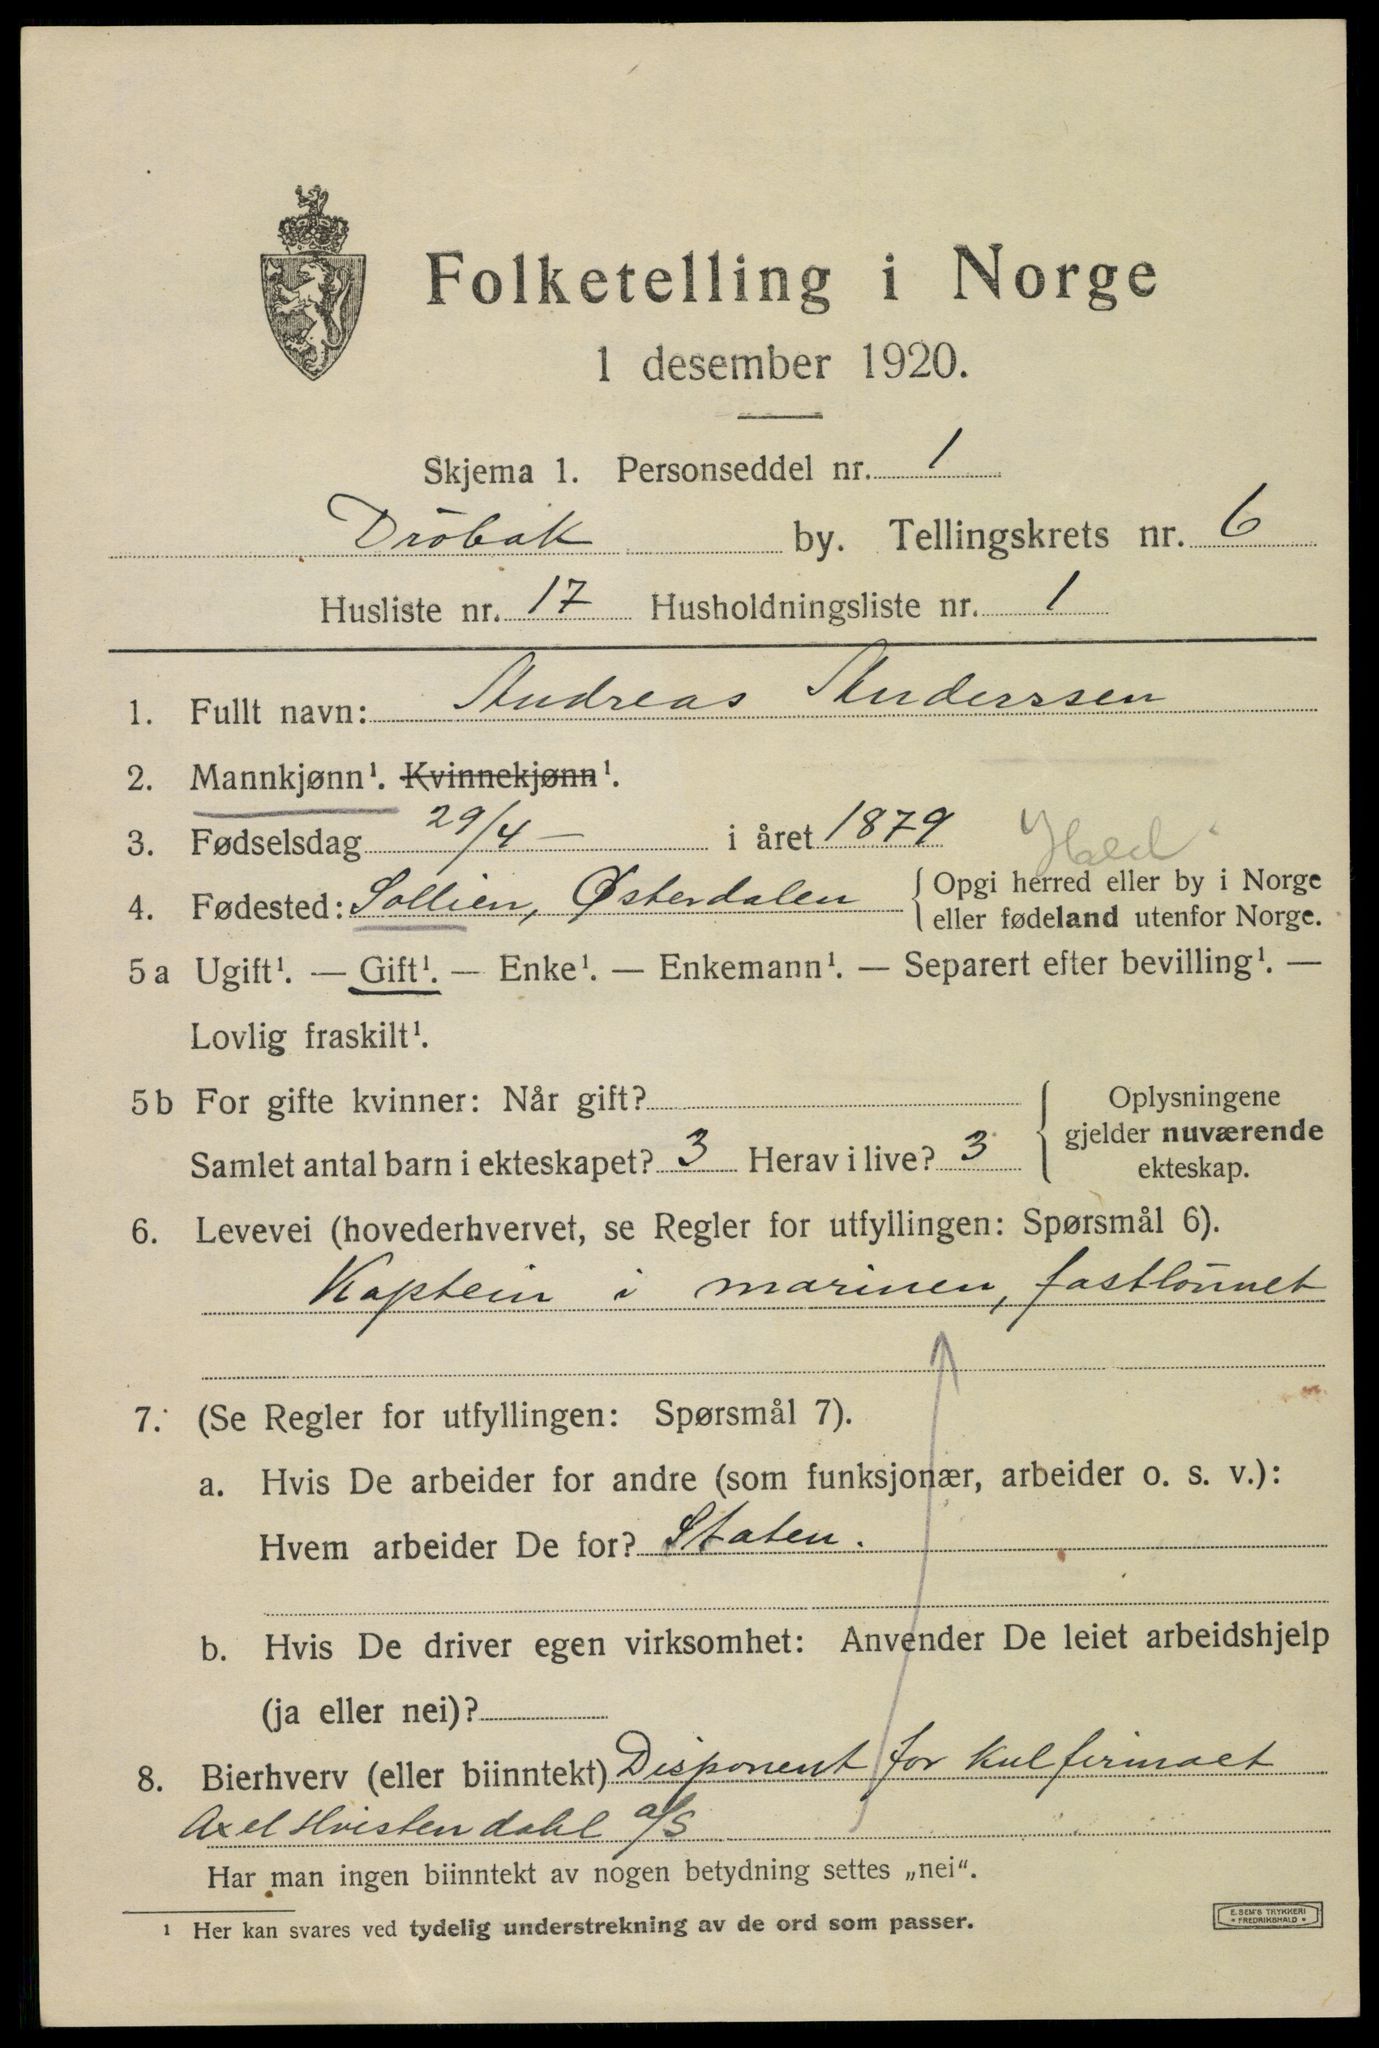 Folketelling i Norge
1 desember 1920.
Skjema 1. Personseddel nr. 1
Dröbak by. Tellingskrets nr. 6
Husliste nr. 17 Husholdningsliste nr. 1
1. Fullt navn: Andreas Anderssen
2. Mannkjønn¹. Kvinnekjønn¹.
3. Fødselsdag 29/4 — i året 1879
4. Fødested: Sollien, Østerdalen { Opgi herred eller by i Norge
eller fødeland utenfor Norge.
5 a Ugift¹. — Gift¹. — Enke¹. — Enkemann¹. — Separert efter bevilling¹. —
Lovlig fraskilt¹.
5 b For gifte kvinner: Når gift?
Samlet antal barn i ekteskapet? 3 Herav i live? 3
Oplysningene
gjelder nuværende
ekteskap.
6. Levevei (hovederhvervet, se Regler for utfyllingen: Spørsmål 6).
Kaptein i marinen, fastlönnet
7. (Se Regler for utfyllingen: Spørsmål 7).
a. Hvis De arbeider for andre (som funksjonær, arbeider o. s. v.):
Hvem arbeider De for? Staten.
b. Hvis De driver egen virksomhet: Anvender De leiet arbeidshjelp
(ja eller nei)?
8. Bierhverv (eller biinntekt) Disponent for kulfirmaet
Axel Hvistendahl a/S
Har man ingen biinntekt av nogen betydning settes „nei“.
¹ Her kan svares ved tydelig understrekning av de ord som passer.
E. SEM'S TRYKKERI
• FREDRIKSHALD •